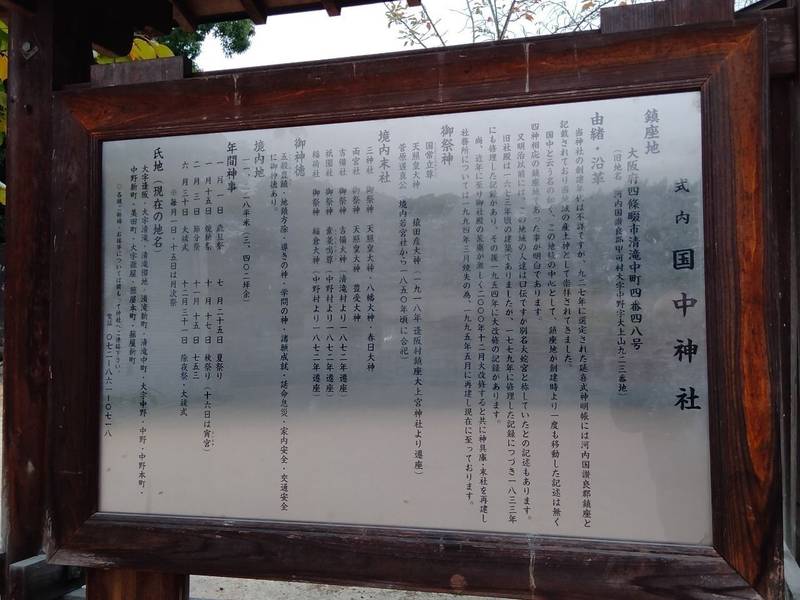 式内 国中神社
鎮座地
大阪府四條畷市清滝中町四番四八号
(旧地名 河内国讃良郡甲可村大字中野字大上山九二三番地)
由緒・沿革
当神社の創建年代は不詳ですが、九二七年に選定された延喜式神明帳には河内国讃良郡鎮座と
記載されており当地域の産土神として崇拝されてきました。
国中と云う名の如く、この地域の中心として、鎮座地が創建時より一度も移動した記述は無く
四神相応の鎮座地であった事が明白であります。
又明治以前には、この地域の人達は口伝ですが別名大蛇宮と称していたとの記述もあります。
旧社殿は一六七三年頃の建築でありましたが、一七七九年に修理した記録につづき一八三三年
にも修理した記録があり、その後一九五四年に大改修の記録があります。
尚、近年に至り御社殿の荒廃が激しく二〇〇〇年十二月大改修すると共に神具庫・末社を再建し
社務所については一九九四年三月焼失の為、一九九五年五月に再建し現在に至っております。
御祭神
国常立尊
天照皇大神 猿田彦大神(一九一八年逢阪村鎮座大上宮神社より遷座)
菅原道真公 境内若宮社から一八五〇年頃に合祀)
境内末社
三神社 御祭神 天照皇大神・八幡大神・春日大神
両宮社 御祭神 天照皇大神 豊受大神
吉備社 御祭神 吉備大神(清滝村より一八七二年遷座)
祇園社 御祭神 素盞嗚尊(中野村より一八七二年遷座)
稲荷社 御祭神 稲倉大神(中野村より一八七二年遷座)
御神徳
五穀豊穣・地鎮方除・導きの神・学問の神・諸願成就・延命息災・家内安全・交通安全
に御神徳あり。
境内地
一一、一八平米(三、四〇二坪余)
年間神事
一月一日 歳旦祭 七月二十五日 夏祭り
一月十五日 焼餅祭 十月十七日 秋祭り(十六日は宵宮)
二月三日 節分祭 十一月十五日 七五三
六月三十日 大祓式 十二月三十一日 除夜祭・大祓式
※毎月一日・十五日は月次祭
氏地(現在の地名)
大字逢阪・大字清滝・清滝団地・清滝新町・清滝中町・大字中野・中野・中野本町・
中野新町・美田町・大字蔀屋・蔀屋本町・蔀屋新町
○各種ご祈祷・お祓事については国中神社へご連絡下さい。
電話 〇七二-八六一-一〇七一八